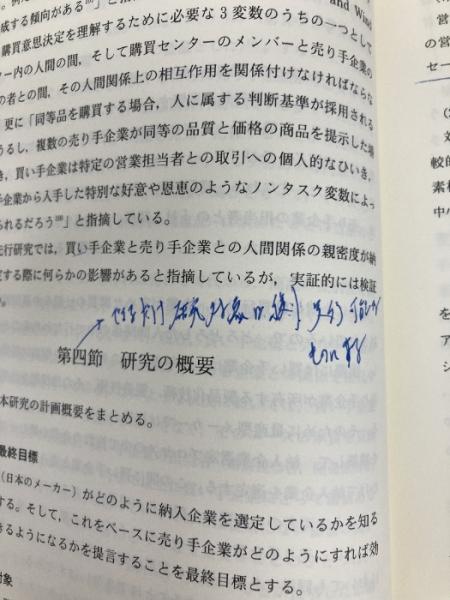 成する傾向がある
and Wind
購買意思決定を理解するために必要な3変数のうちの一つとして
ター内の人間の間，そして購買センターのメンバーと売り手企業の
の者との間，その人間関係上の相互作用を関係付けなければならな
更に「同等品を購買する場合，人に属する判断基準が採用される
うるし，複数の売り手企業が同等の品質と価格の商品を提示した場
き，買い手企業は特定の営業担当者との取引への個人的なひいき，
企業から入手した特別な好意や恩恵のようなノンタスク変数によっ
られるだろう」と指摘している。
先行研究では，買い手企業と売り手企業との人間関係の親密度が納
定する際に何らかの影響があると指摘しているが，実証的には検証
研究
第四節　研究の概要
本研究の計画概要をまとめる。
最終目標
（日本のメーカー）がどのように納入企業を選定しているかを知る
する。そして，これをベースに売り手企業がどのようにすれば効
きるようになるかを提言することを最終目標とする。
対象
営
の営
セー
対
較的
素
中
を
ア
シ